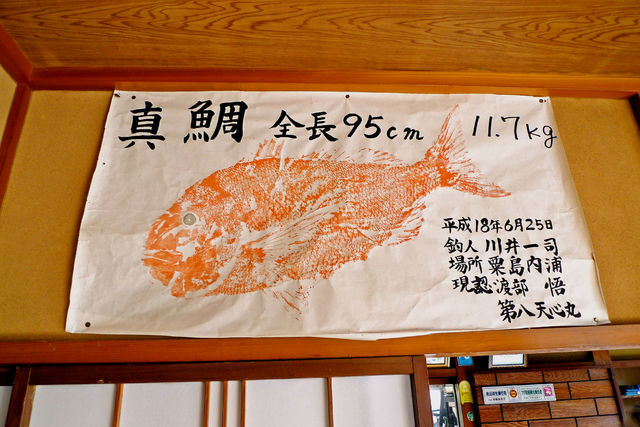 真鯛 全長95cm 11.7kg
平成18年6月25日
釣人 川井一司
場所 粟島内浦
現認 渡部 悟
第八天心丸